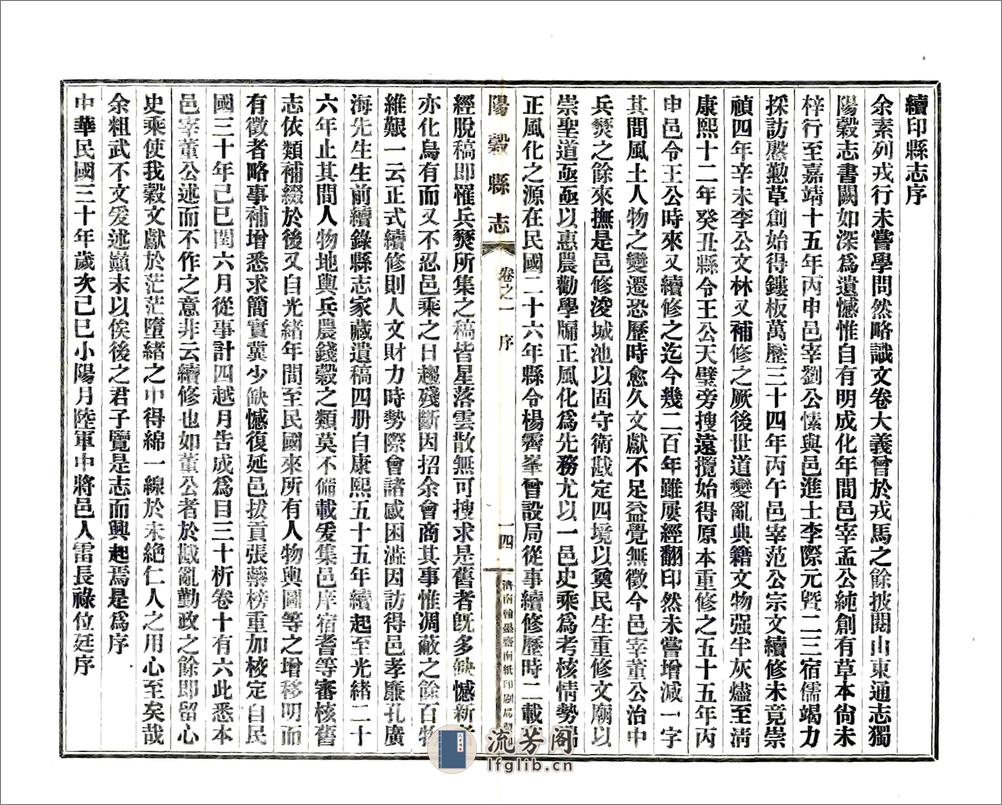 續印縣志序
余素列戎行未嘗學問然略識文卷大義曾於戎馬之餘披閱山東通志獨
陽穀志書闕如深為遺憾惟自有明成化年間邑宰孟公純創有草本尚未
梓行至嘉靖十五年丙申邑宰劉公愫與邑進士李際元暨二三宿儒竭力
採訪慇懃草創始得鏤板萬歷三十四年丙午邑宰范公宗文續修未竟崇
禎四年辛未李公文林又補修之厥後世道變亂典籍文物强半灰燼至淸
康熙十二年癸丑縣令王公天璧旁搜遠攬始得原本重修之五十五年丙
申邑令王公時來又續修之迄今幾二百年雖屢經翻印然未嘗增減一字
其間風土人物之變遷恐歷時愈久文獻不足益覺無徵今邑宰董公治中
兵燹之餘來撫是邑修浚城池以固守衛戡定四境以奠民生重修文廟以
崇聖道亟亟以惠農勸學牖正風化為先務尤以一邑史乘為考核情勢
正風化之源在民國二十六年縣令楊霽峯曾設局從事續修歷時二載
陽穀縣志
卷之一 序
一四
濟南翰墨齋南紙印刷局
經脫稿即罹兵燹所集之稿皆星落雲散無可搜求是舊者旣多缺憾新
亦化烏有而又不忍邑乘之日趨殘斷因招余會商其事惟凋蔽之餘百物
維艱一云正式續修則人文財力時勢際會諸感困澁因訪得邑孝廉孔廣
海先生生前續錄縣志家藏遺稿四册自康熙五十五年續起至光緒二十
六年止其間人物地輿兵農錢穀之類莫不備載爰集邑庠宿耆等審核舊
志依類補綴於後又自光緒年間至民國來所有人物輿圖等之增移明而
有徵者略事補增悉求簡實冀少缺憾復延邑拔貢張樂榜重加核定自民
國三十年己巳閏六月從事計四越月告成為目三十析卷十有六此悉本
邑宰董公述而不作之意非云續修也如董公者於戡亂勤政之餘即留心
史乘使我穀文獻於茫茫墮緒之中得綿一線於未絕仁人之用心至矣哉
余粗武不文爰述巔末以俟後之君子覽是志而興起焉是為序
中華民國三十年歲次己巳小陽月陸軍中將邑人雷長祿位廷序
流芳閣
lfglib.cn